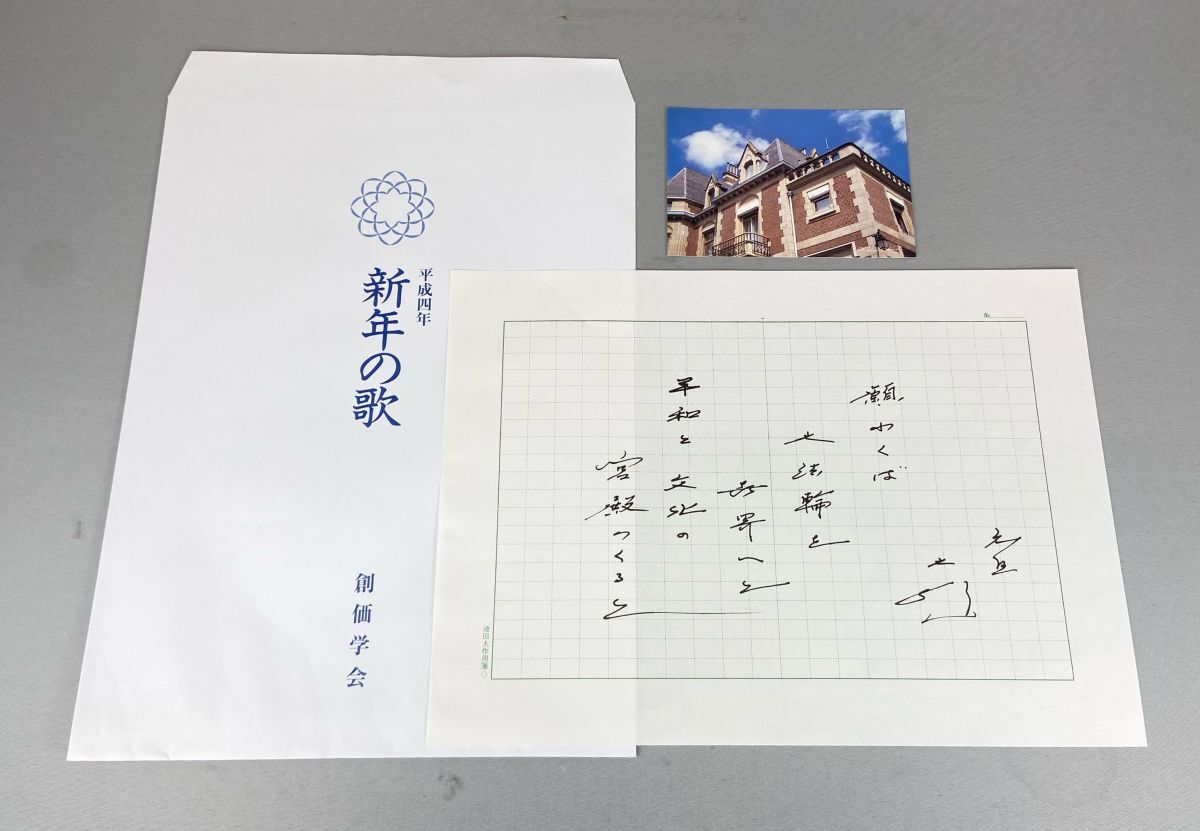 平成四年
新年の歌
創価学会
№
元旦
願わくば
大法輪を
世界へと
平和と文化の
宮殿つくると
池田大作用箋